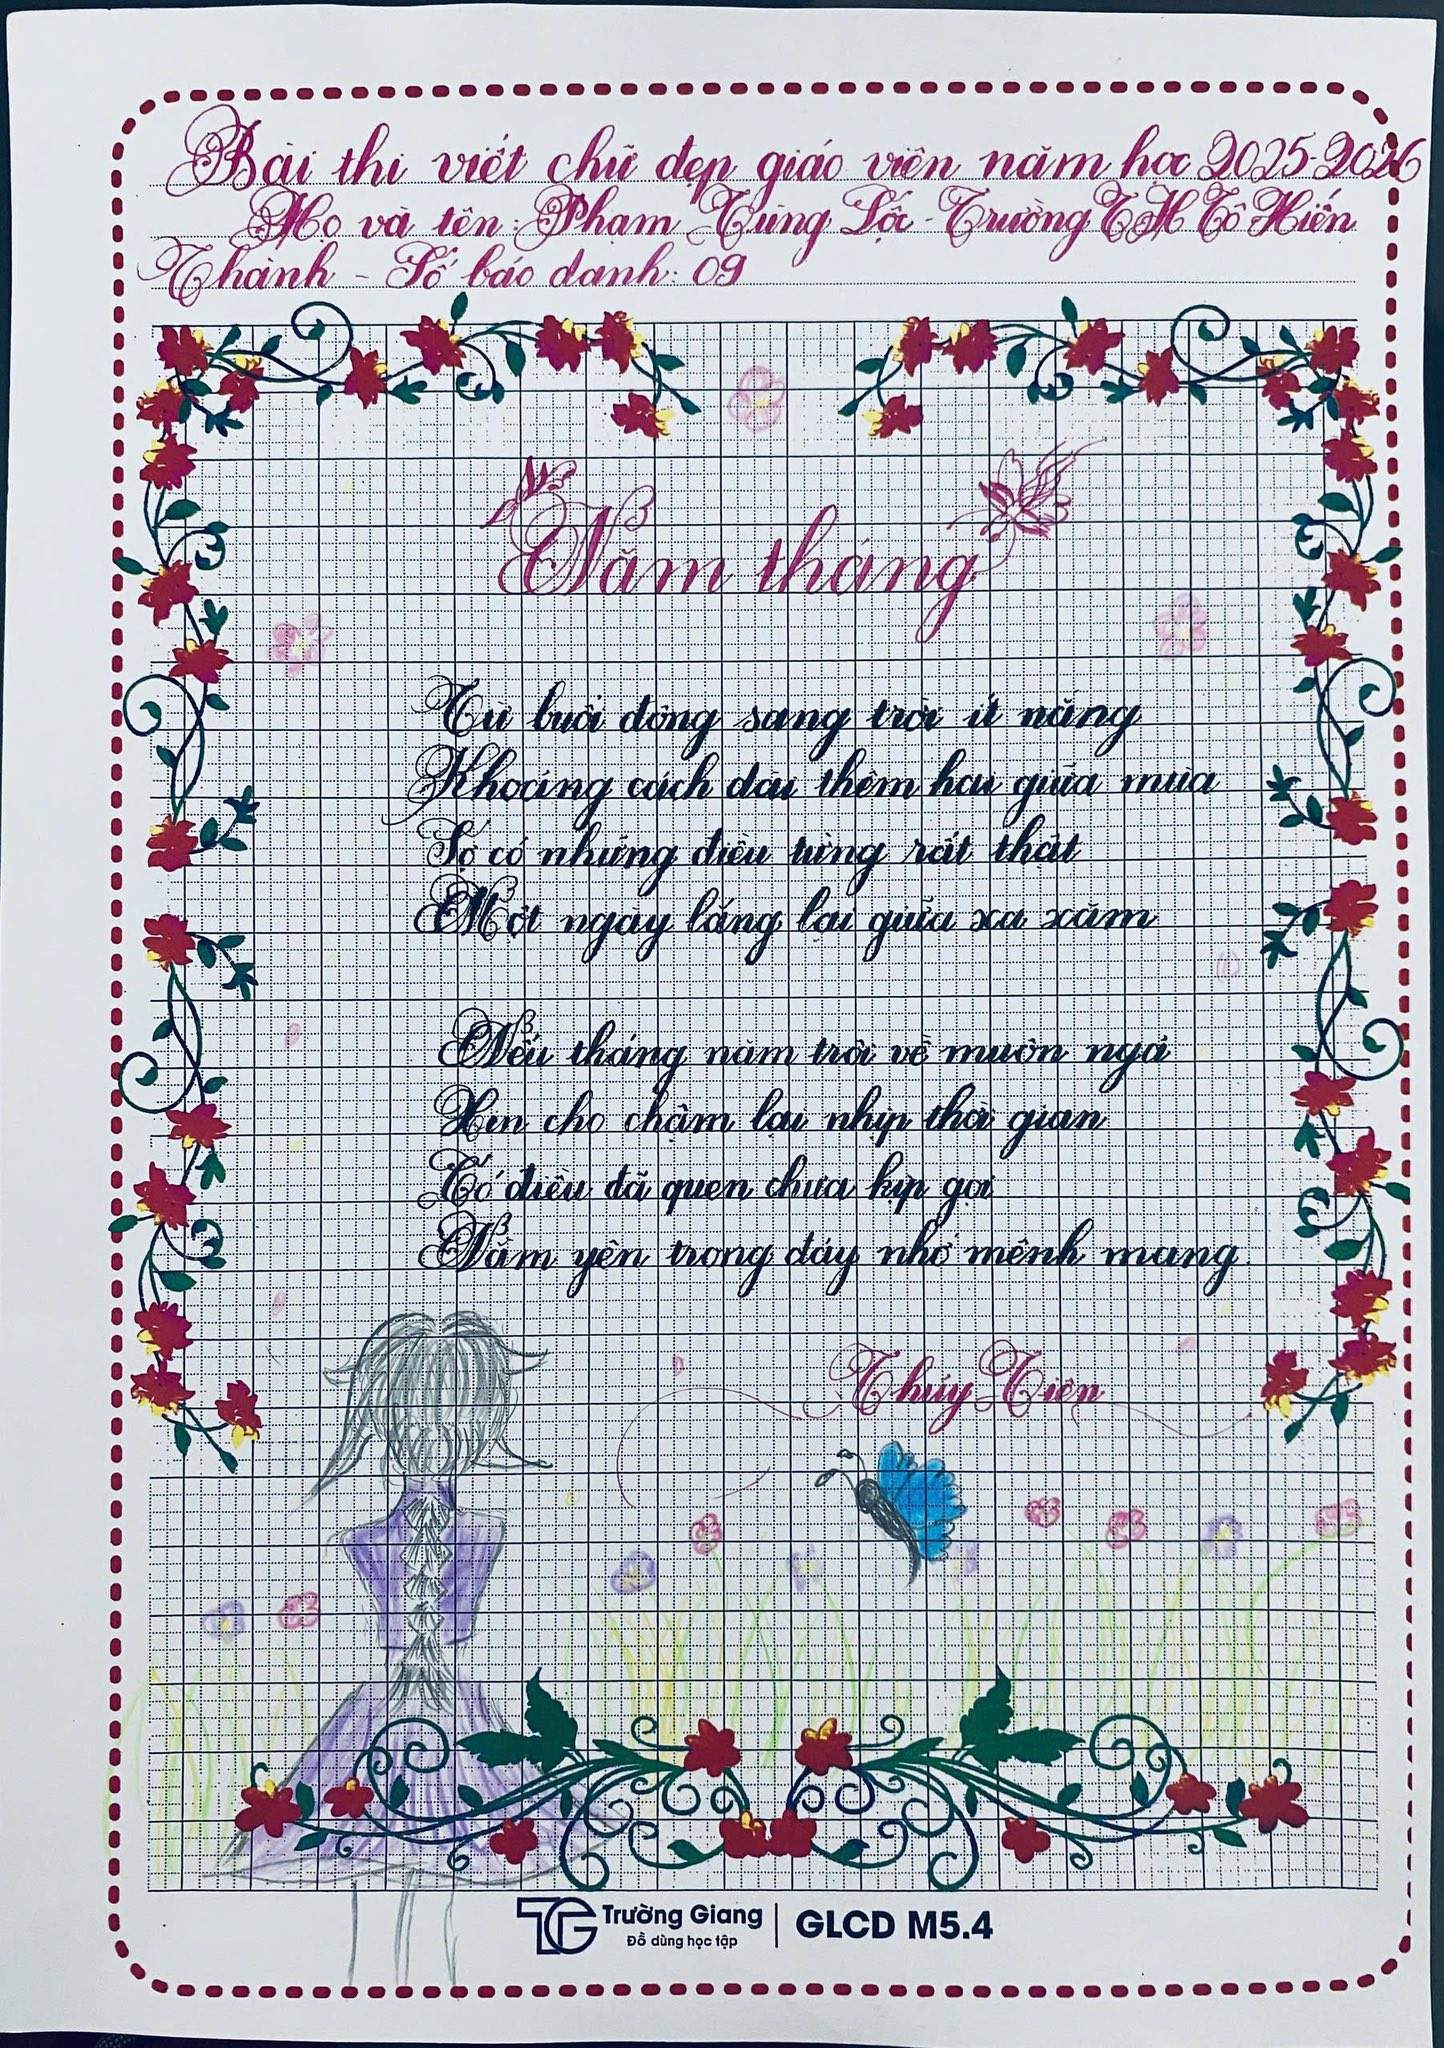 Bài thi viết chữ đẹp giáo viên năm học 2025-2026
Họ và tên: Phạm Tùng Lộc - Trường TH Tô Hiến
Thành - Số báo danh: 09
Năm tháng
Từ buổi đông sang trời ít nắng
Khoảng cách dài thêm hai giữa mùa
Sợ có những điều từng rất thật
Một ngày lắng lại giữa xa xăm
Nếu tháng năm trôi về muôn ngả
Xin cho chậm lại nhịp thời gian
Có điều đã quen chưa kịp gọi
Nằm yên trong đáy nhớ mênh mang.
Thúy Tiên
Trường Giang
Đồ dùng học tập
GLCD M5.4